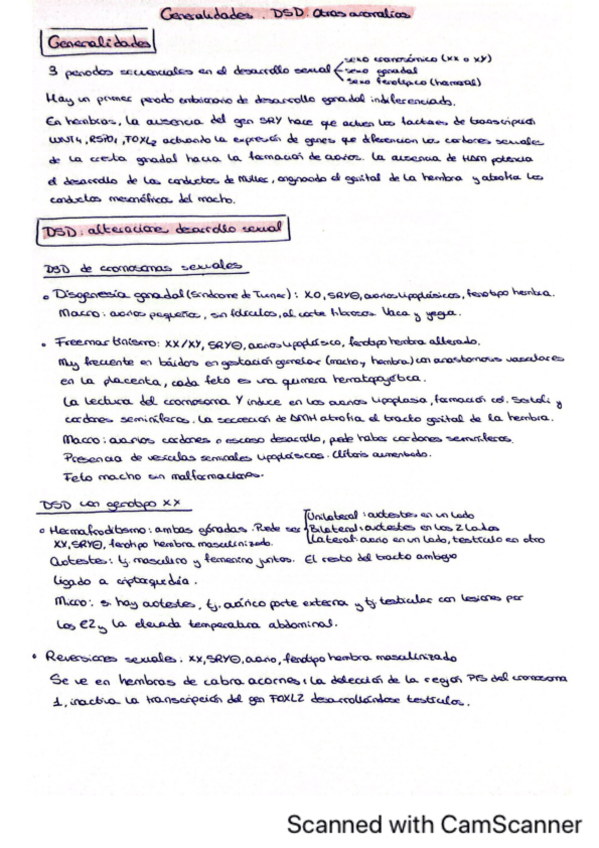 Generalidades. DSD. Otras anomalías
Generalidades
3 periodos secuenciales en el desarrollo sexual
sexo cromosómico (XX o XY)
sexo gonadal
sexo fenotípico (hormonal)
Hay un primer periodo embrionario de desarrollo gonadal indiferenciado.
En hembras, la ausencia del gen SRY hace que actúen los factores de transcripción
WNT4, RSPO1, FOXL2 activando la expresión de genes que diferencian los cordones sexuales
de la cresta gonadal hacia la formación de ovarios. La ausencia de HAM potencia
el desarrollo de los conductos de Müller, originando el genital de la hembra y atrofia los
conductos mesonéfricos del macho.
DSD: alteraciones desarrollo sexual
DSD de cromosomas sexuales
• Disgenesia gonadal (Síndrome de Turner): XO, SRY⊖, ovarios hipoplásicos, fenotipo hembra.
Macro: ovarios pequeños, sin folículos, al corte fibrosos. Vaca y yegua.
• Freemartinismo: XX/XY, SRY⊕, ovarios hipoplásico, fenotipo hembra alterado.
Muy frecuente en bóvidos en gestación gemelar (macho y hembra) con anastomosis vasculares
en la placenta, cada feto es una quimera hematopoyética.
La lectura del cromosoma Y induce en los ovarios hipoplasia, formación cel. Sertoli y
cordones seminíferos. La secreción de AMH atrofia el tracto genital de la hembra.
Macro: ovarios cordones o escaso desarrollo, puede haber cordones seminíferos.
Presencia de vesículas seminales hipoplásicos. Clítoris aumentado.
Feto macho sin malformaciones.
DSD con genotipo XX
• Hermafroditismo: ambas gónadas. Puede ser
Unilateral: ovotestes en un lado
Bilateral: ovotestes en los 2 lados
Lateral: ovario en un lado, testículo en otro
XX, SRY⊖, fenotipo hembra masculinizado.
Ovotestes: tj. masculino y femenino juntos. El resto del tracto ambiguo
ligado a criptorquidia.
Micro: si hay ovotestes, tj. ovárico parte externa y tj testicular con lesiones por
los E2 y la elevada temperatura abdominal.
• Reversiones sexuales. XX, SRY⊖, ovario, fenotipo hembra masculinizado
Se ve en hembras de cabra acornes: la delección de la región PIS del cromosoma
1, inactiva la transcripción del gen FOXL2 desarrollándose testículos.
Scanned with CamScanner